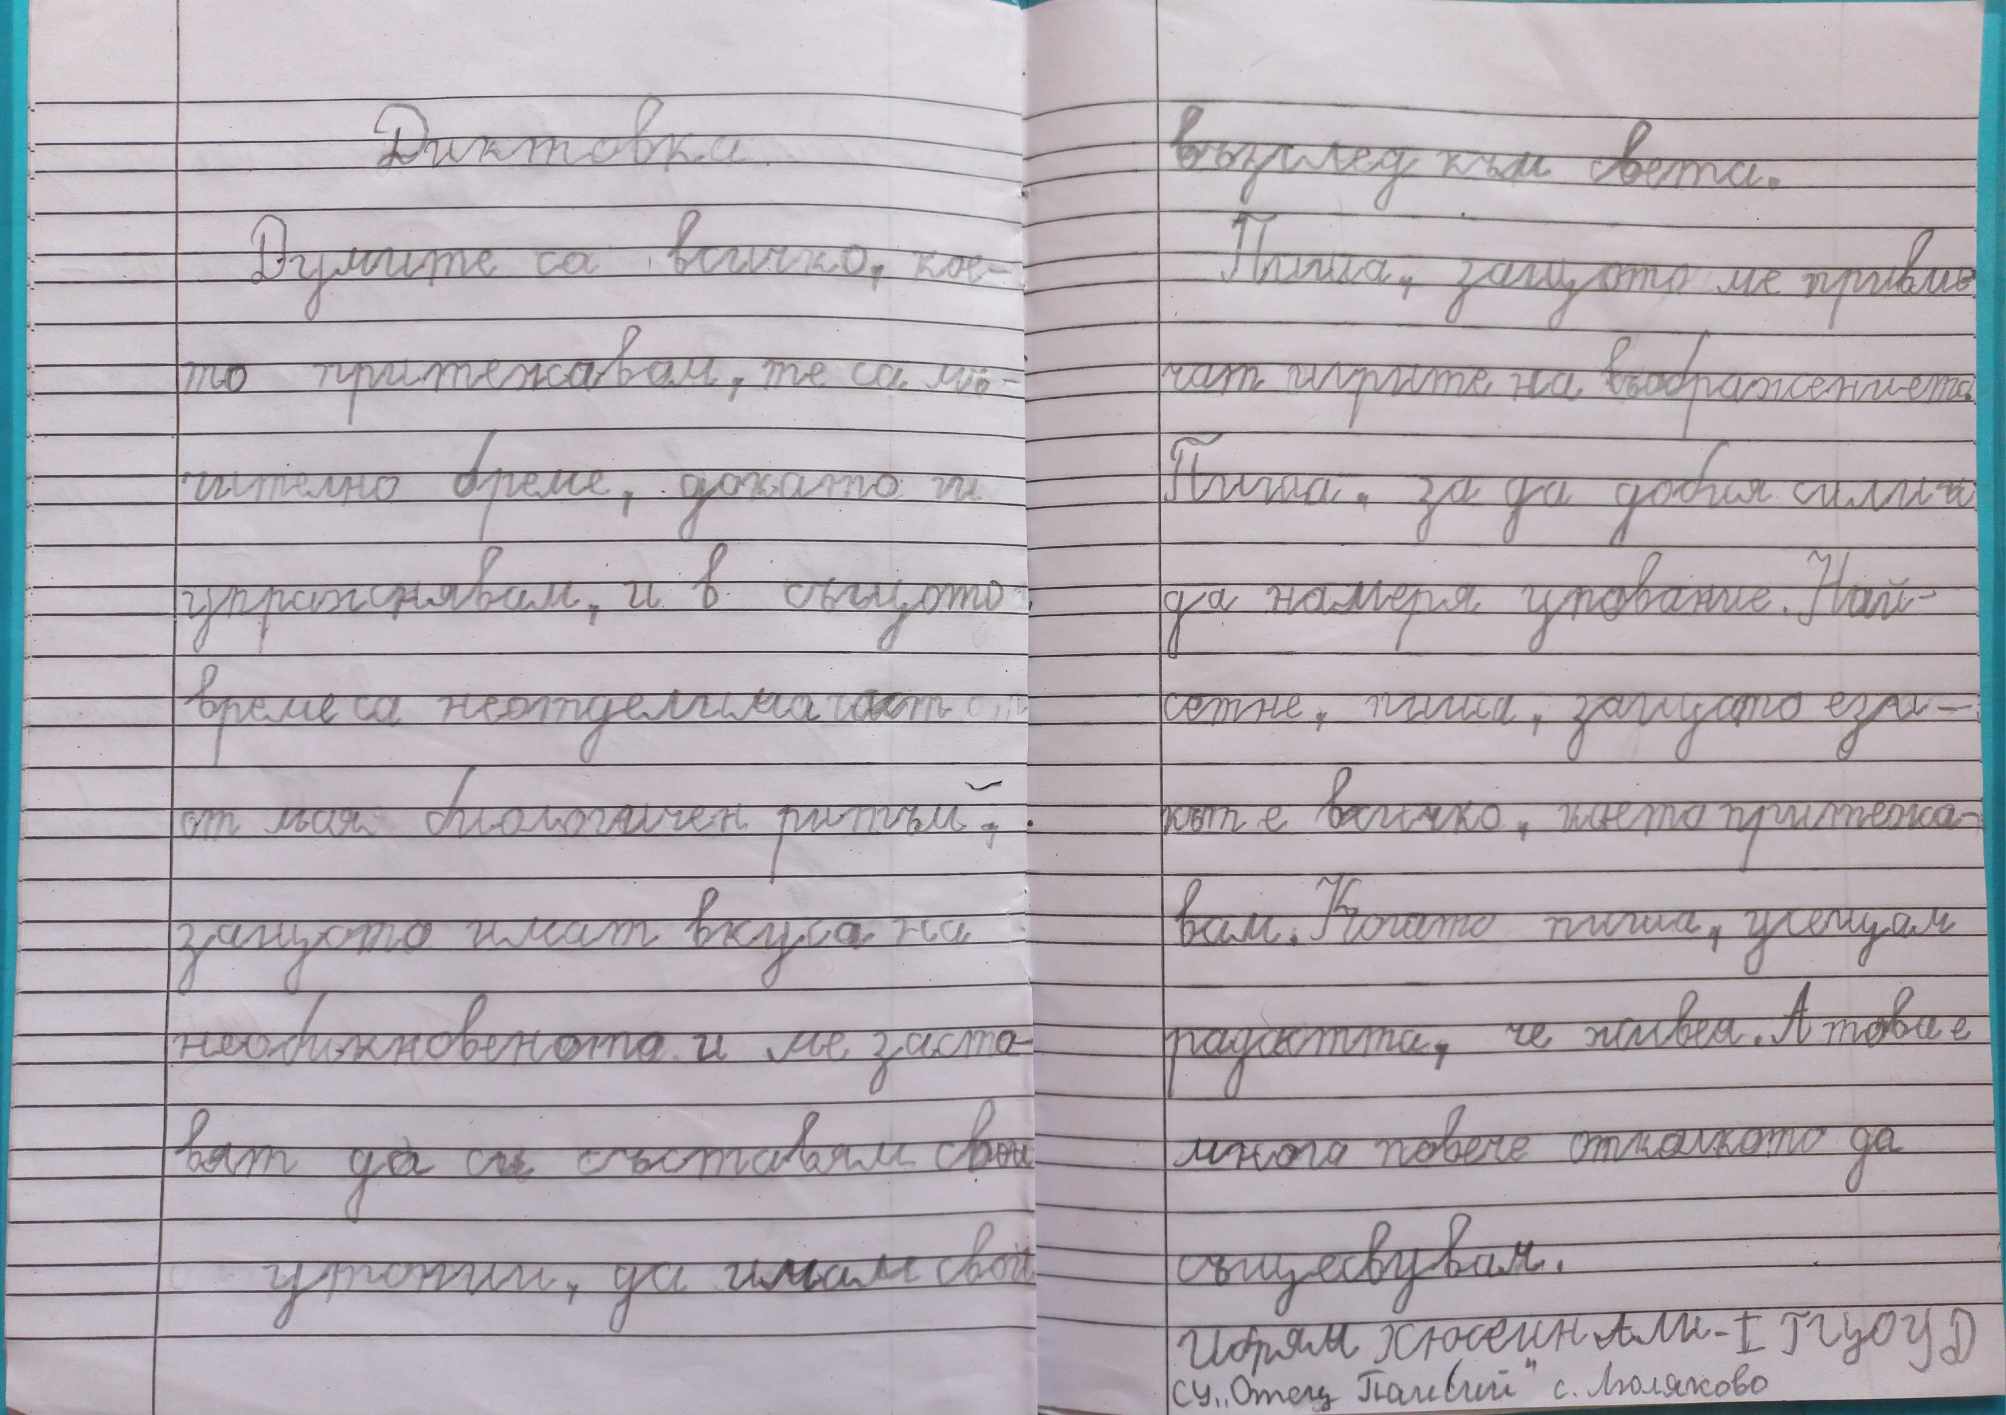 Диктовка.
Думите са всичко, кое-
то притежавам, те са мъ-
чително време, докато ги
упражнявам, и в същото
време са неотделима част от
от моя биологичен ритъм,
защото имат вкуса на
необикновеното и ме заста-
вят да си съставям свои
утопии, да имам свой
възглед към света.
Пиша, защото ме привли-
чат игрите на въображението.
Пиша, за да добия сили и
да намеря упование. Най-
сетне, пиша, защото ези-
кът е всичко, което притежа-
вам. Когато пиша, усещам
радостта, че живея. А това е
много повече отколкото да
същесвувам.
Ибрям Хюсеин Али-I ГГЦОУД
СУ„Отец Паисий" с. Люляково